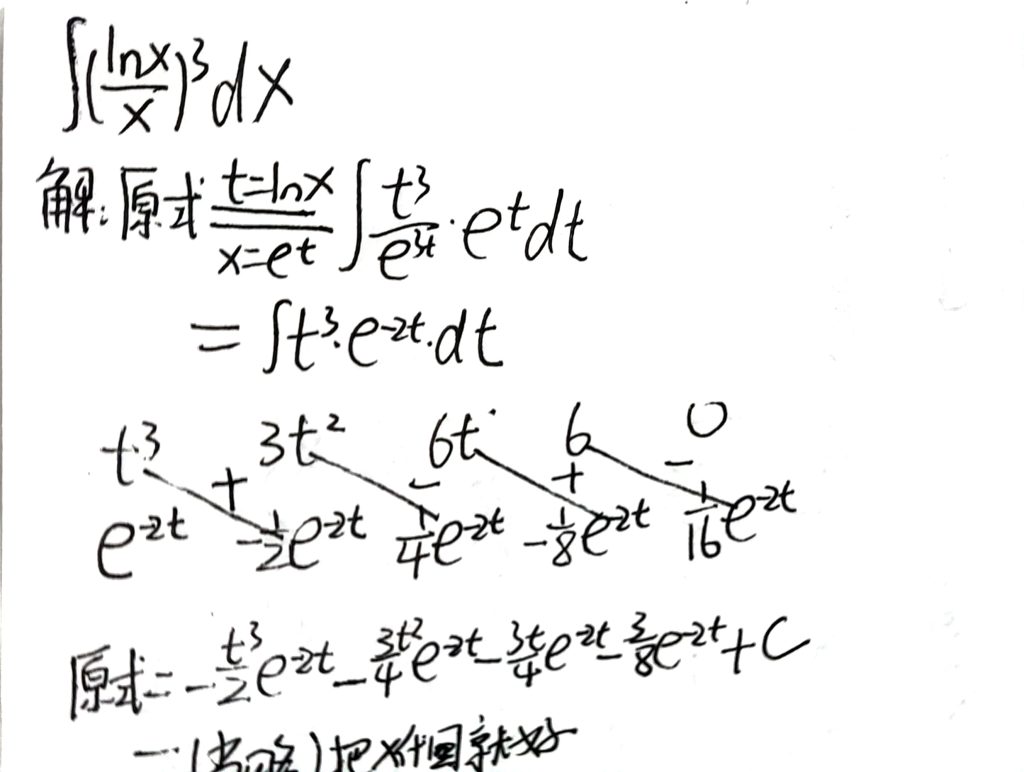 ∫(lnx/x)³dx
解:原式 t=lnx x=e^t ∫t³/e^{3t}·e^t dt
=∫t³·e^{-2t}·dt
t³ + 3t² - 6t + 6 - 0
e^{-2t} -1/2e^{-2t} 1/4e^{-2t} -1/8e^{-2t} 1/16e^{-2t}
原式=-t³/2e^{-2t}-3t²/4e^{-2t}-3t/4e^{-2t}-3/8e^{-2t}+C
略)把x代回就好